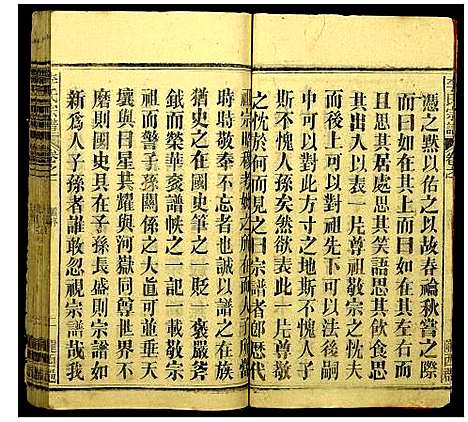 憑之默以佑之以故春禴秋嘗之際
而曰如在其上而曰如在其左右而
且思其居處思其笑語思其飲食思
其出入以表一片尊祖敬宗之心夫
然後上可以對祖先下可以法後嗣
中可以對此方寸之地斯不愧人子
斯不愧人孫矣然欲表此一片尊敬
之忱於何而見之曰宗譜者郎歷代
祖宗昭穆考妣之神而人子所當
時時敬奉不忘者也誠以譜之在族
猶史之在國史筆之一貶一褒嚴斧
鉞而榮華袞譜帙之一記一載敬宗
祖而警子孫關係之大直可並垂天
壤與日星其耀與河嶽同尊世界不
磨則國史長在子孫長盛則宗譜如
新為人子孫者誰敢忽視宗譜哉我
李氏宗譜